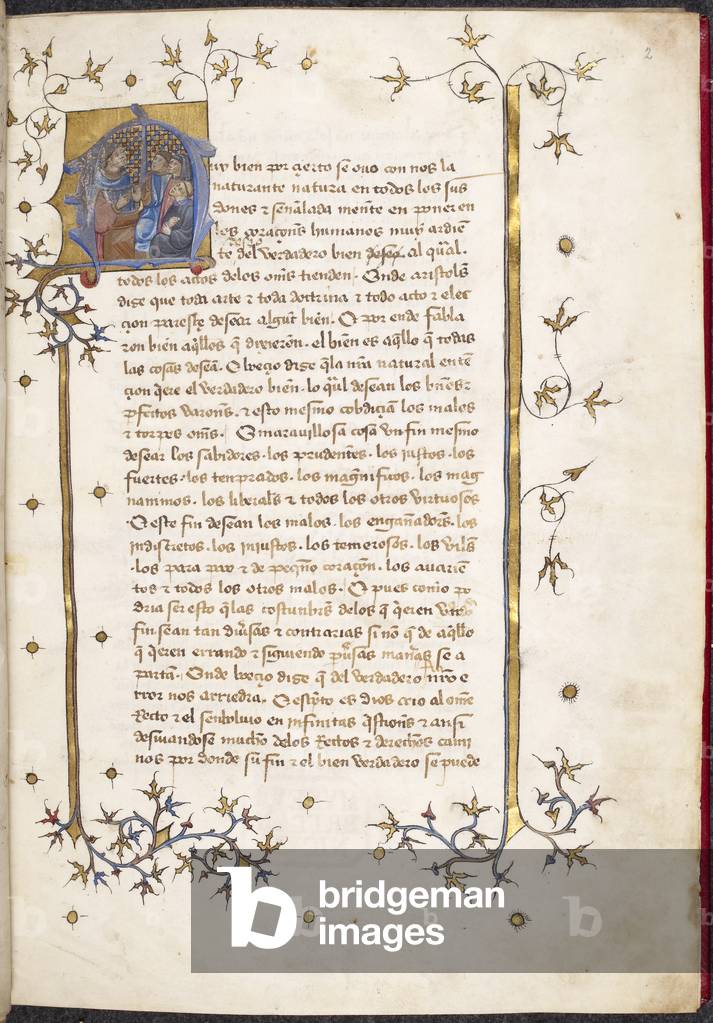 2
Muy bien por çierto se ouo con nos la
naturante natura en todos los sus
dones ⁊ señalada mente en poner en
los coraçon̄s humanos muy ardiẽ
deseo
te del verdadero bien deseo al qual.
todos los actos delos om̄s tienden. Onde aristol̃s
dize que toda arte ⁊ toda doctrina ⁊ todo acto ⁊ elec
çion paresçe desear algũt bien. E por ende fabla
ron bien aq̃llos q̃ dixierõn. el bien es aq̃llo q̃ todas
las cosas deseã. E boeçio dize q̃ la nr̃a natural entẽ
çion q̃ere el verdadero bien. lo q̃l desean los buẽos ⁊
ꝑfectos varon̄s. ⁊ esto mesmo cobdiçiã los malos
⁊ torpes om̄s. E marauillosa cosa vn fin mesmo
desear los sabidores. los prudentes. los iustos. los
fuertes. los tenprados. los magnificos. los mag
nanimos. los liberal̃s ⁊ todos los otros virtuosos
E este fin desean los malos. los engañador̃s. los
indiscretos. los iniustos. los temerosos. los vil̃s
los para poco ⁊ de peq̃no coraçon. los auariẽ
tos ⁊ todos los otros malos. E pues como po
dria ser esto q̃ las costunbr̃s delos q̃ q̃eren
fin sean tan diũsas ⁊ contrarias si no q̃ de aq̃llo
q̃ q̃eren errando ⁊ siguiendo mañas se a
partã. Onde boeçio dize q̃ del verdadero nr̃o e
rror nos arriedra. E escpto es dios crio al ome
Recto ⁊ el senboluio en infinitas q̃stion̄s ⁊ ansi
desuiandose mucho delos Rectos ⁊ derechos cami
nos por donde su fin ⁊ el bien verdadero se puede
b bridgeman
images